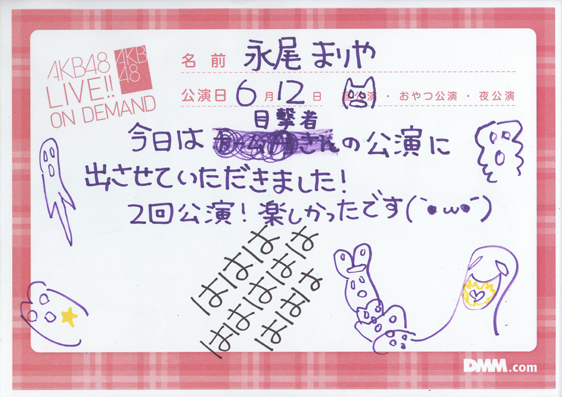 AKB48
LIVE!!
ON DEMAND
AKB
48
名前 永尾まりや
公演日 6月12日 公演・おやつ公演・夜公演
目撃者
今日は の公演に
出させていただきました!
2回公演!楽しかったです(`●ω●´)
はははは
ははははは
ははははは
はははは
DMM.com